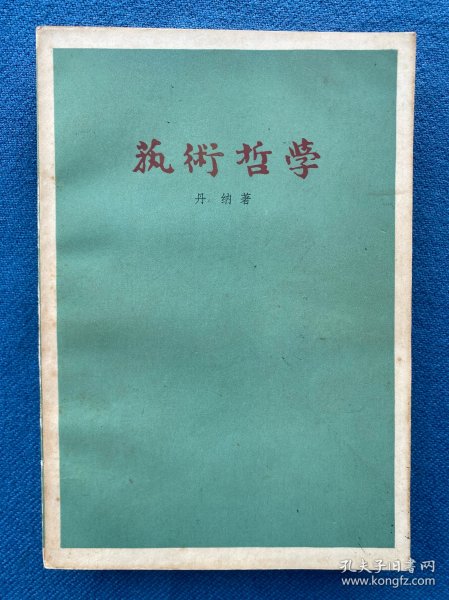 藝術哲學
丹 纳 著
孔夫子旧书网
www.kongfz.com